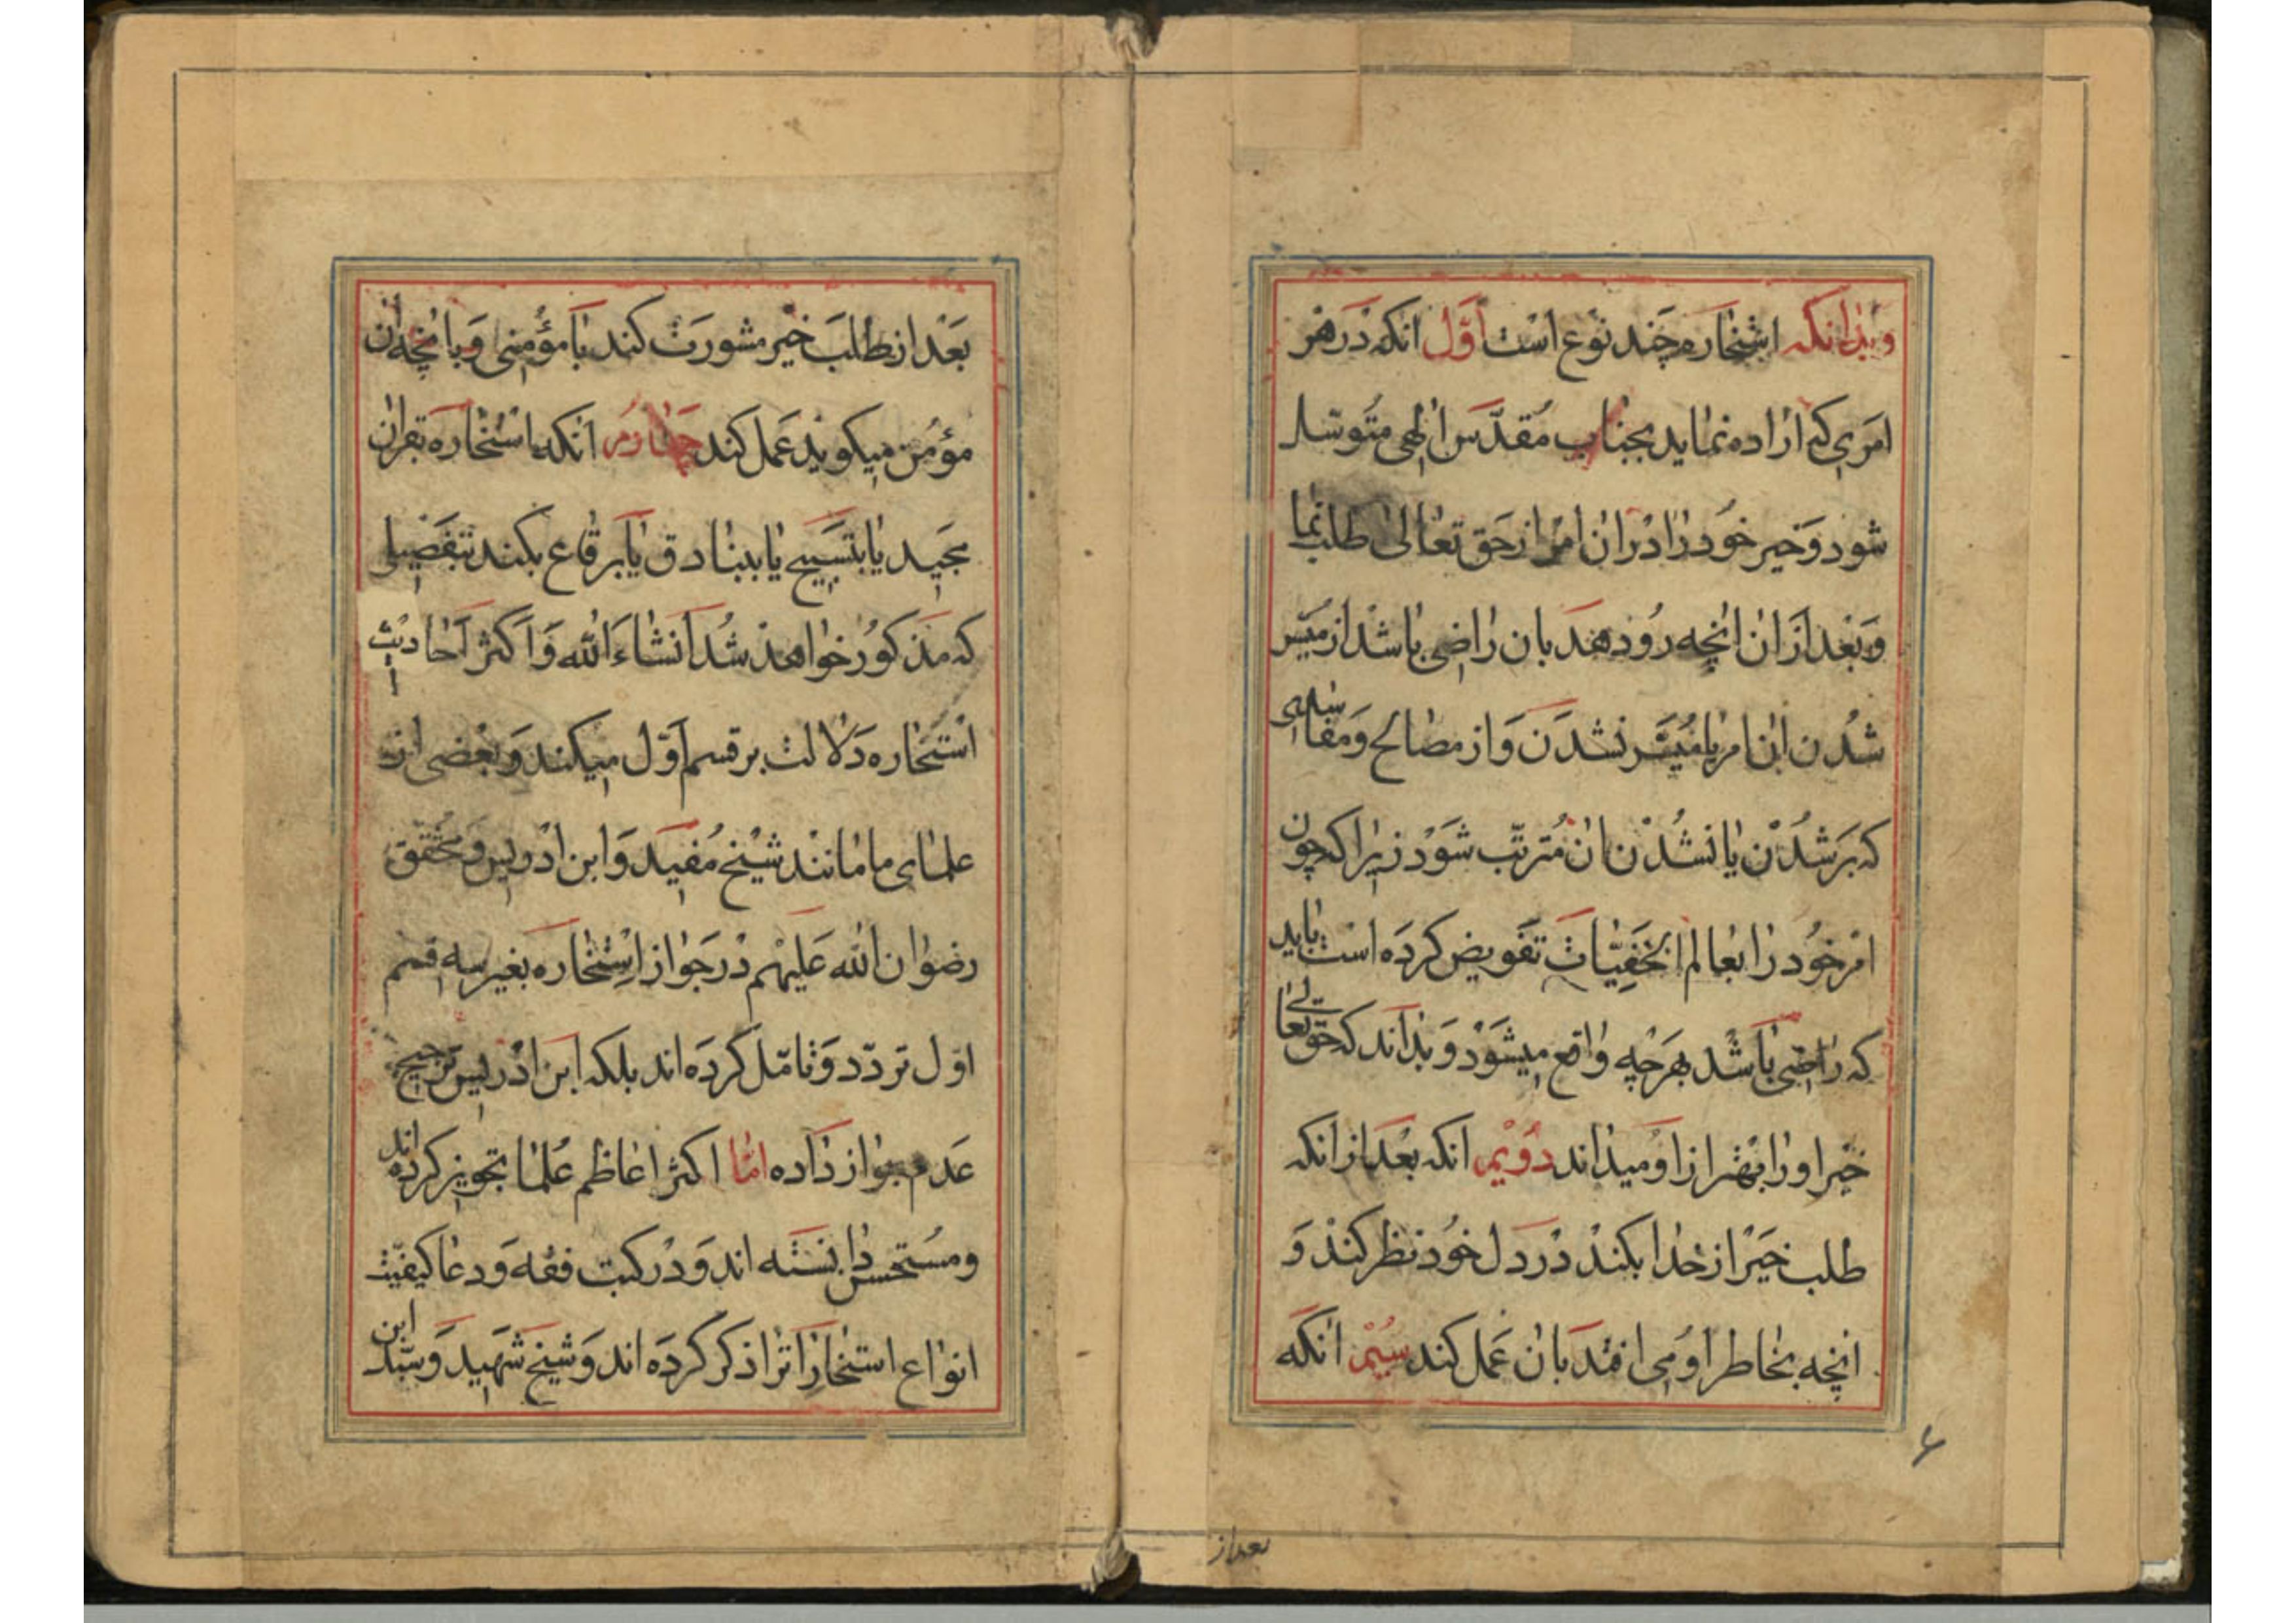 وبدانکه استخاره چند نوع است اول انکه در هر
امری که اراده نماید بجناب مقدس الهی متوسل
شود و خیر خود را در ان امر از حق تعالی طلب نما
و بعد از ان انچه رو دهد بان راضی باشد از میسر
شدن ان امر یا میسر نشدن و از مصالح و مفاسدی
که بر شدن یا نشدن ان مترتب شود زیرا که چون
امر خود را بعالم الخفیات تفویض کرده است باید
که راضی باشد بهر چه واقع میشود و بداند که حق تعالی
خیر او را بهتر از او میداند دویم انکه بعد از انکه
طلب خیر از خدا بکند در دل خود نظر کند و
انچه بخاطر او می افتد بان عمل کند سیم انکه
۶
بعد از
بعد از طلب خیر مشورت کند با مؤمنی و بانچه ان
مؤمن میکوید عمل کند چهارم انکه استخاره بقران
مجید یا بتسبیح یا ببنادق یا برقاع بکند بتفصیلی
که مذکور خواهد شد انشاء الله و اکثر احادیث
استخاره دلالت بر قسم اول میکند و بعضی از
علمای ما مانند شیخ مفید و ابن ادریس و محقق
رضوان الله علیهم در جواز استخاره بغیر سه قسم
اول تردد و تامل کرده اند بلکه ابن ادریس ترجیح
عدم جواز داده اما اکثر اعاظم علما تجویز کرده اند
و مستحسن دانسته اند و در کتب فقه و دعا کیفیت
انواع استخارات را ذکر کرده اند و شیخ شهید و سید ابن